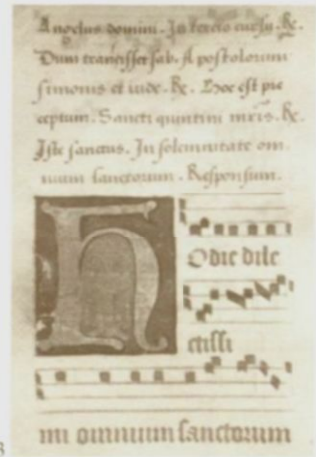 Angelus domini. In tercio cursu. R.
Dum transisset sab. Apostolorum
simonis et iude. R. Hoc est pre
ceptum. Sancti quintini mris. R.
Iste sanctus. In solemnitate om
nium sanctorum. Responsum.
H
Odie dile
ctissi
mi omnium sanctorum